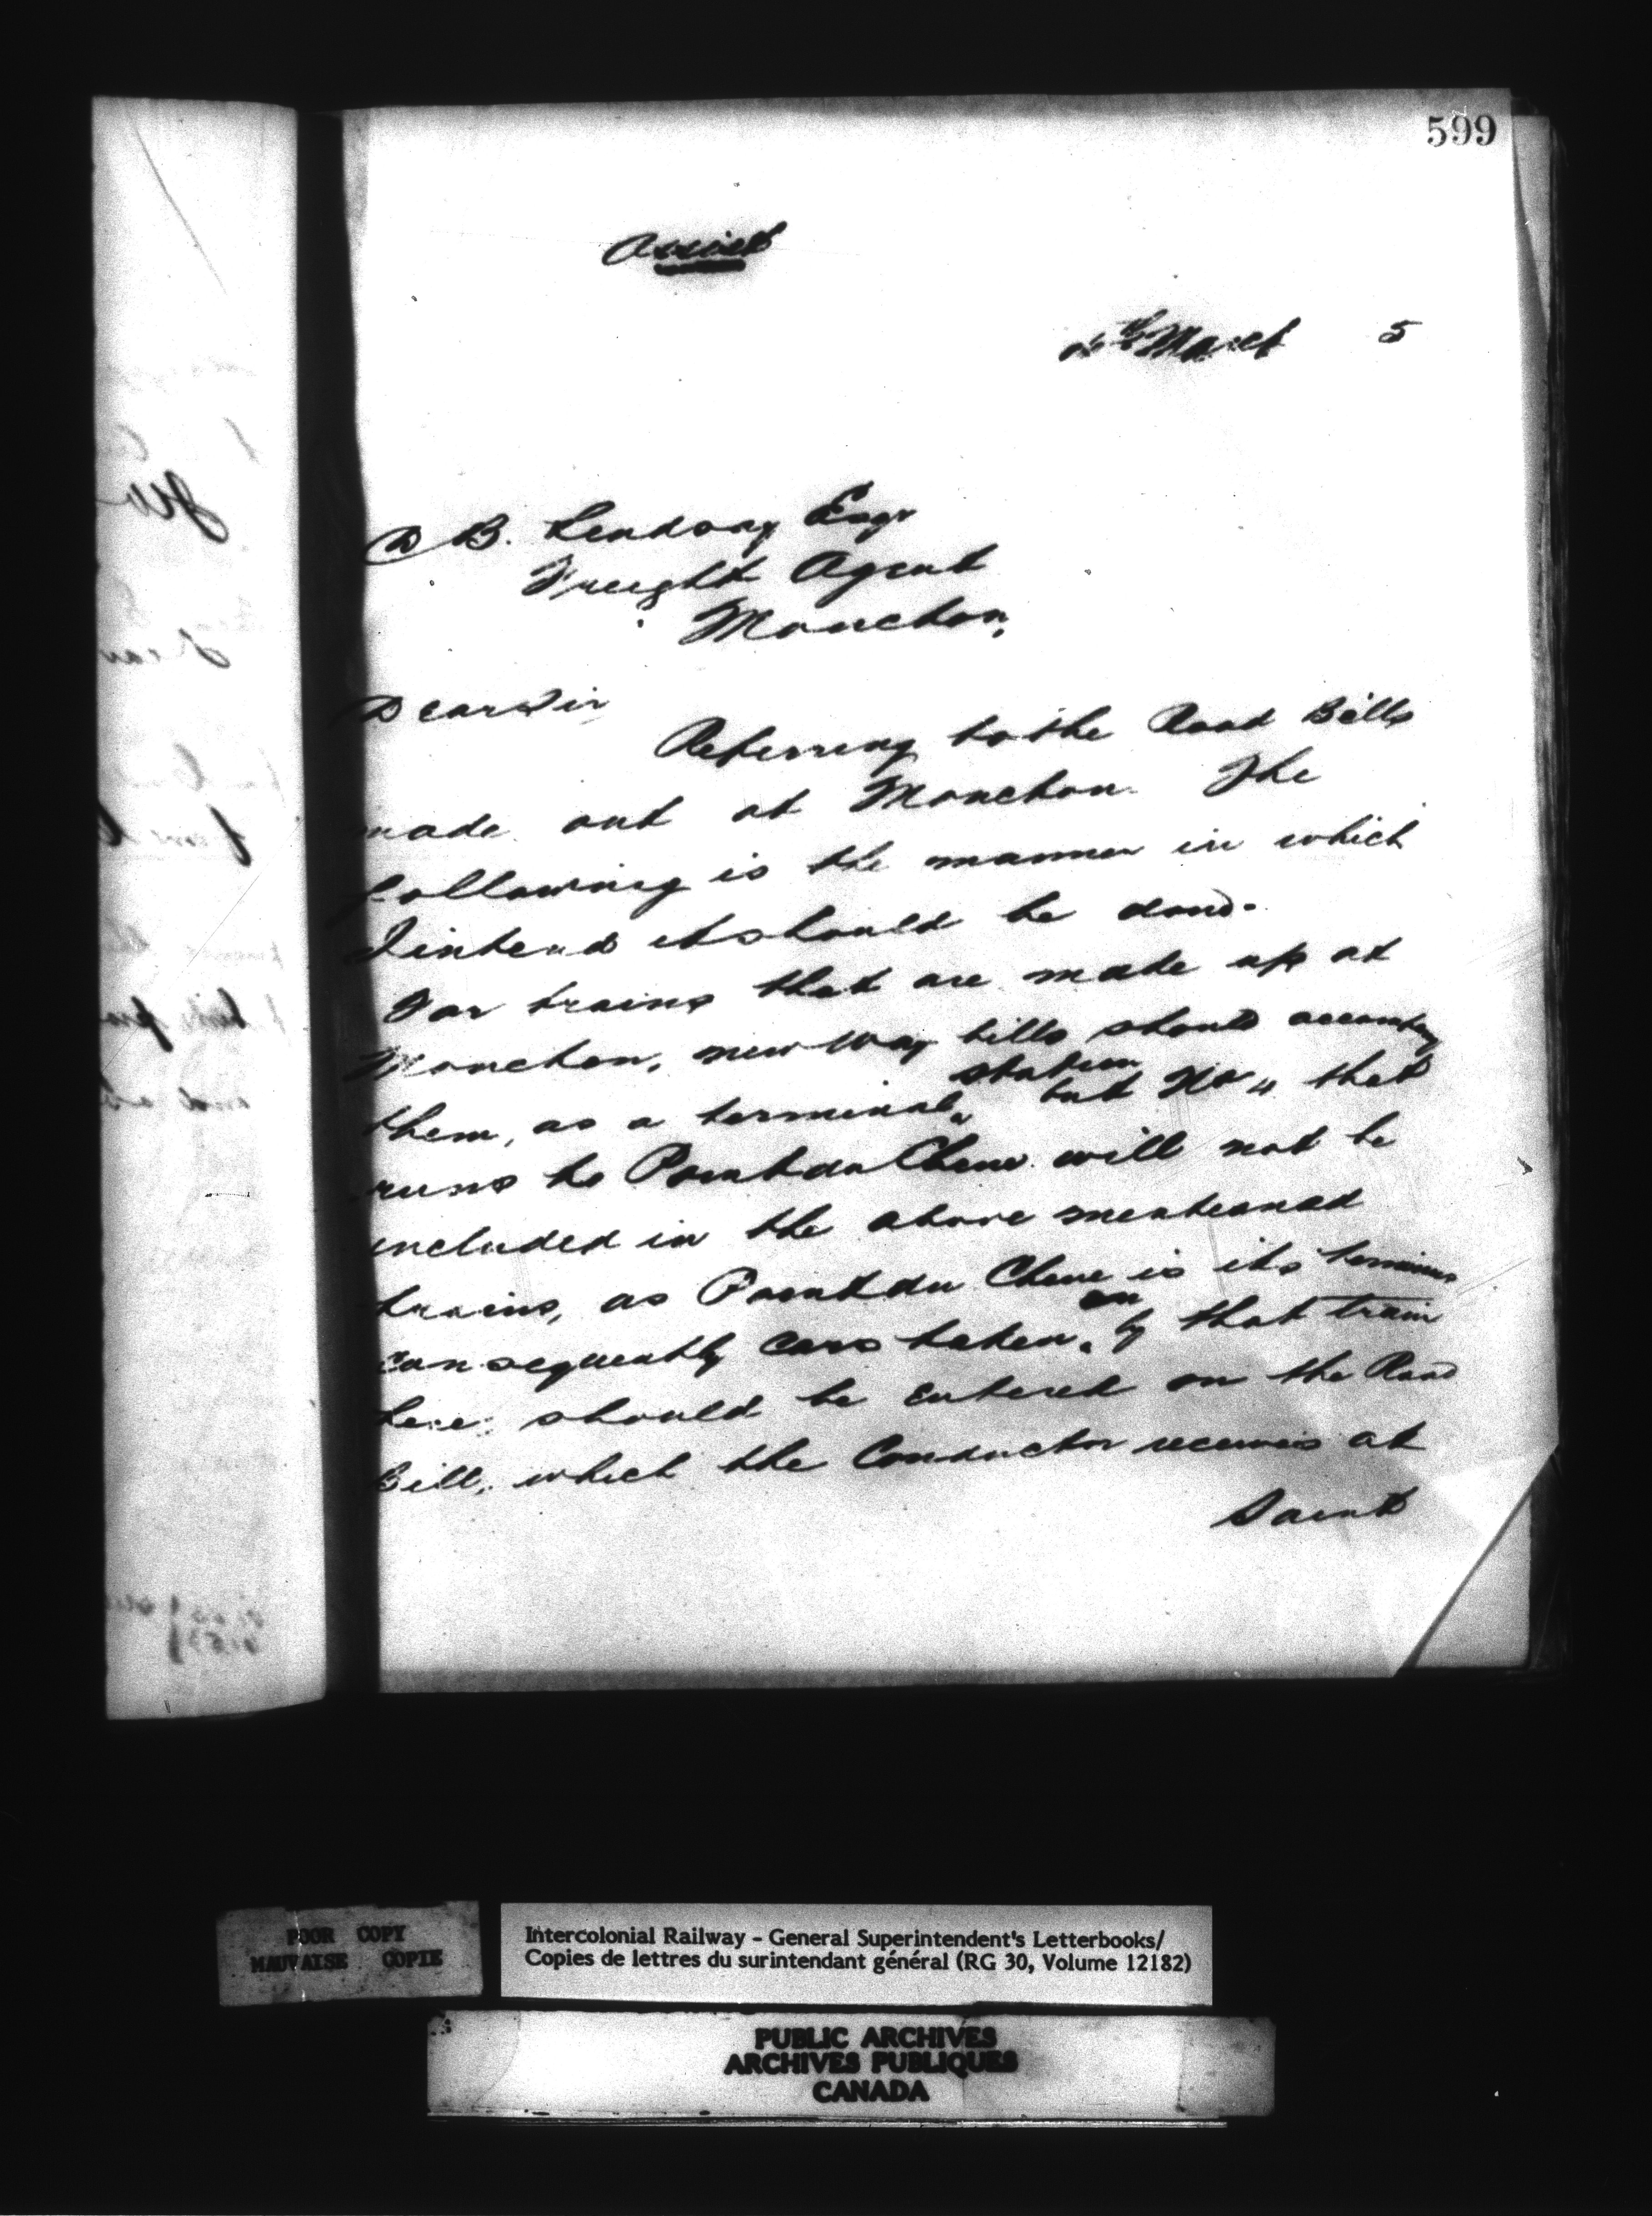 599
Assist
March 5
D B. Lindsay Esqr
Freight Agent
Moncton,
Dear Sir
Referring to the Road Bills
made out at Moncton. The
following is the manner in which
I intend it should be done.
For trains that are made up at
Moncton, new Way bills should accompany
them, as a terminal station but No 11 that
runs to Point du Chene will not be
included in the above mentioned
trains, as Point du Chene is its terminus
consequently cars taken on by that train
here should be entered on the Road
Bill, which the Conductor receives at
Saint
POOR COPY
MAUVAISE COPIE
Intercolonial Railway - General Superintendent's Letterbooks/
Copies de lettres du surintendant général (RG 30, Volume 12182)
PUBLIC ARCHIVES
ARCHIVES PUBLIQUES
CANADA